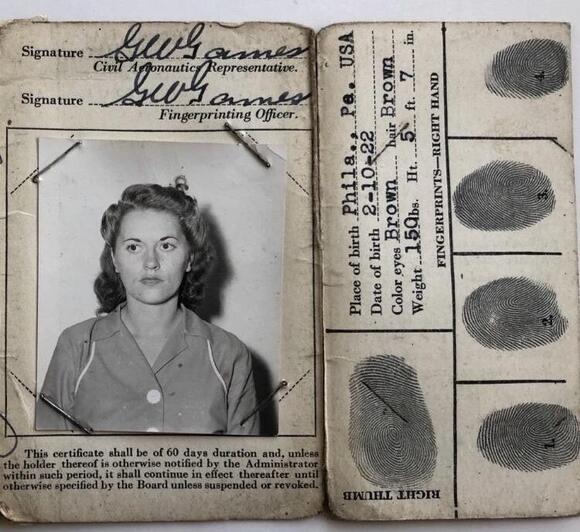 Signature GWGarnes
Civil Aeronautics Representative.
Signature GWGarnes
Fingerprinting Officer.
This certificate shall be of 60 days duration and, unless
the holder thereof is otherwise notified by the Administrator
within such period, it shall continue in effect thereafter until
otherwise specified by the Board unless suspended or revoked.
Place of birth Phila., Pa. USA
Date of birth 2-10-22
Color eyes Brown hair Brown
Weight 150 lbs. Ht. 5 ft 7 in.
FINGERPRINTS—RIGHT HAND
4.
3.
2.
1.
RIGHT THUMB